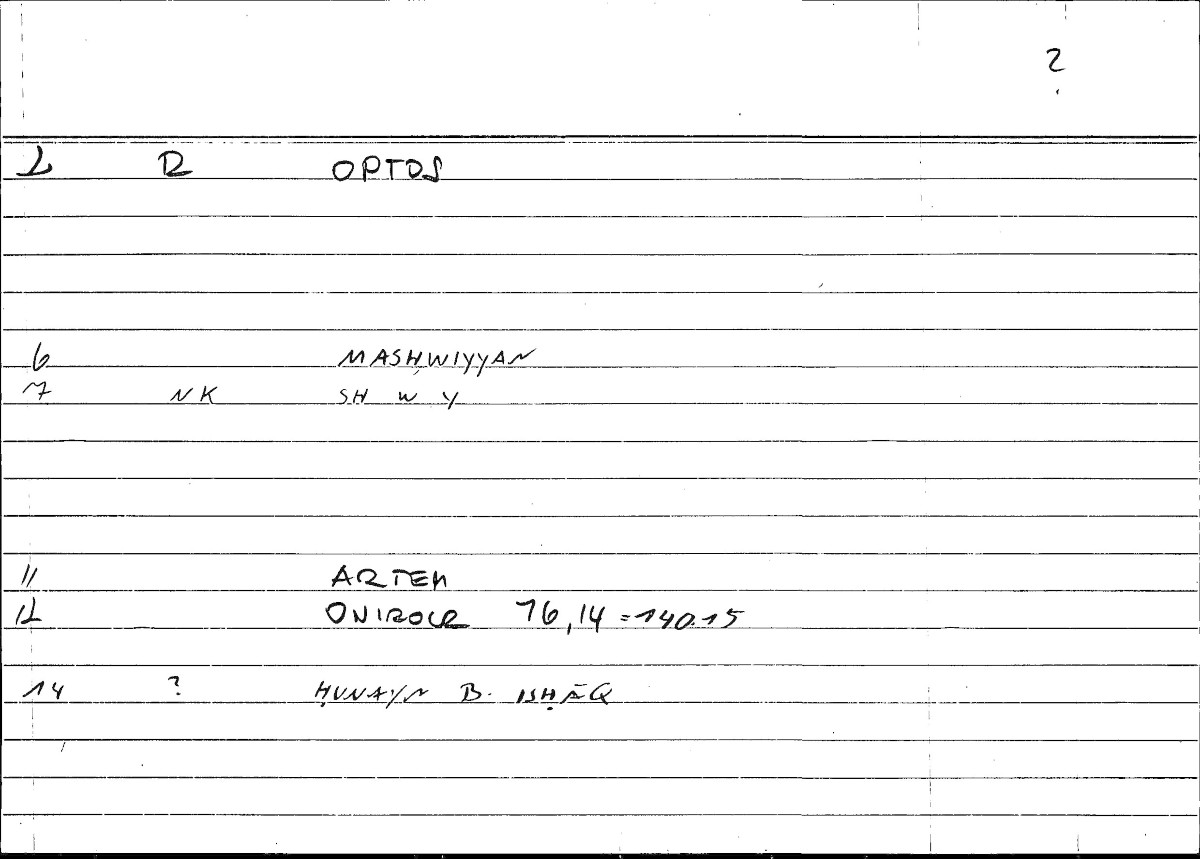 ?
2 R OPTOS
6 MASHWIYYAN
7 NK SH W Y
11 ARTEM
12 ONIROCR 76,14 = 140.15
14 ? ḤUNAYN B. ISḤĀQ